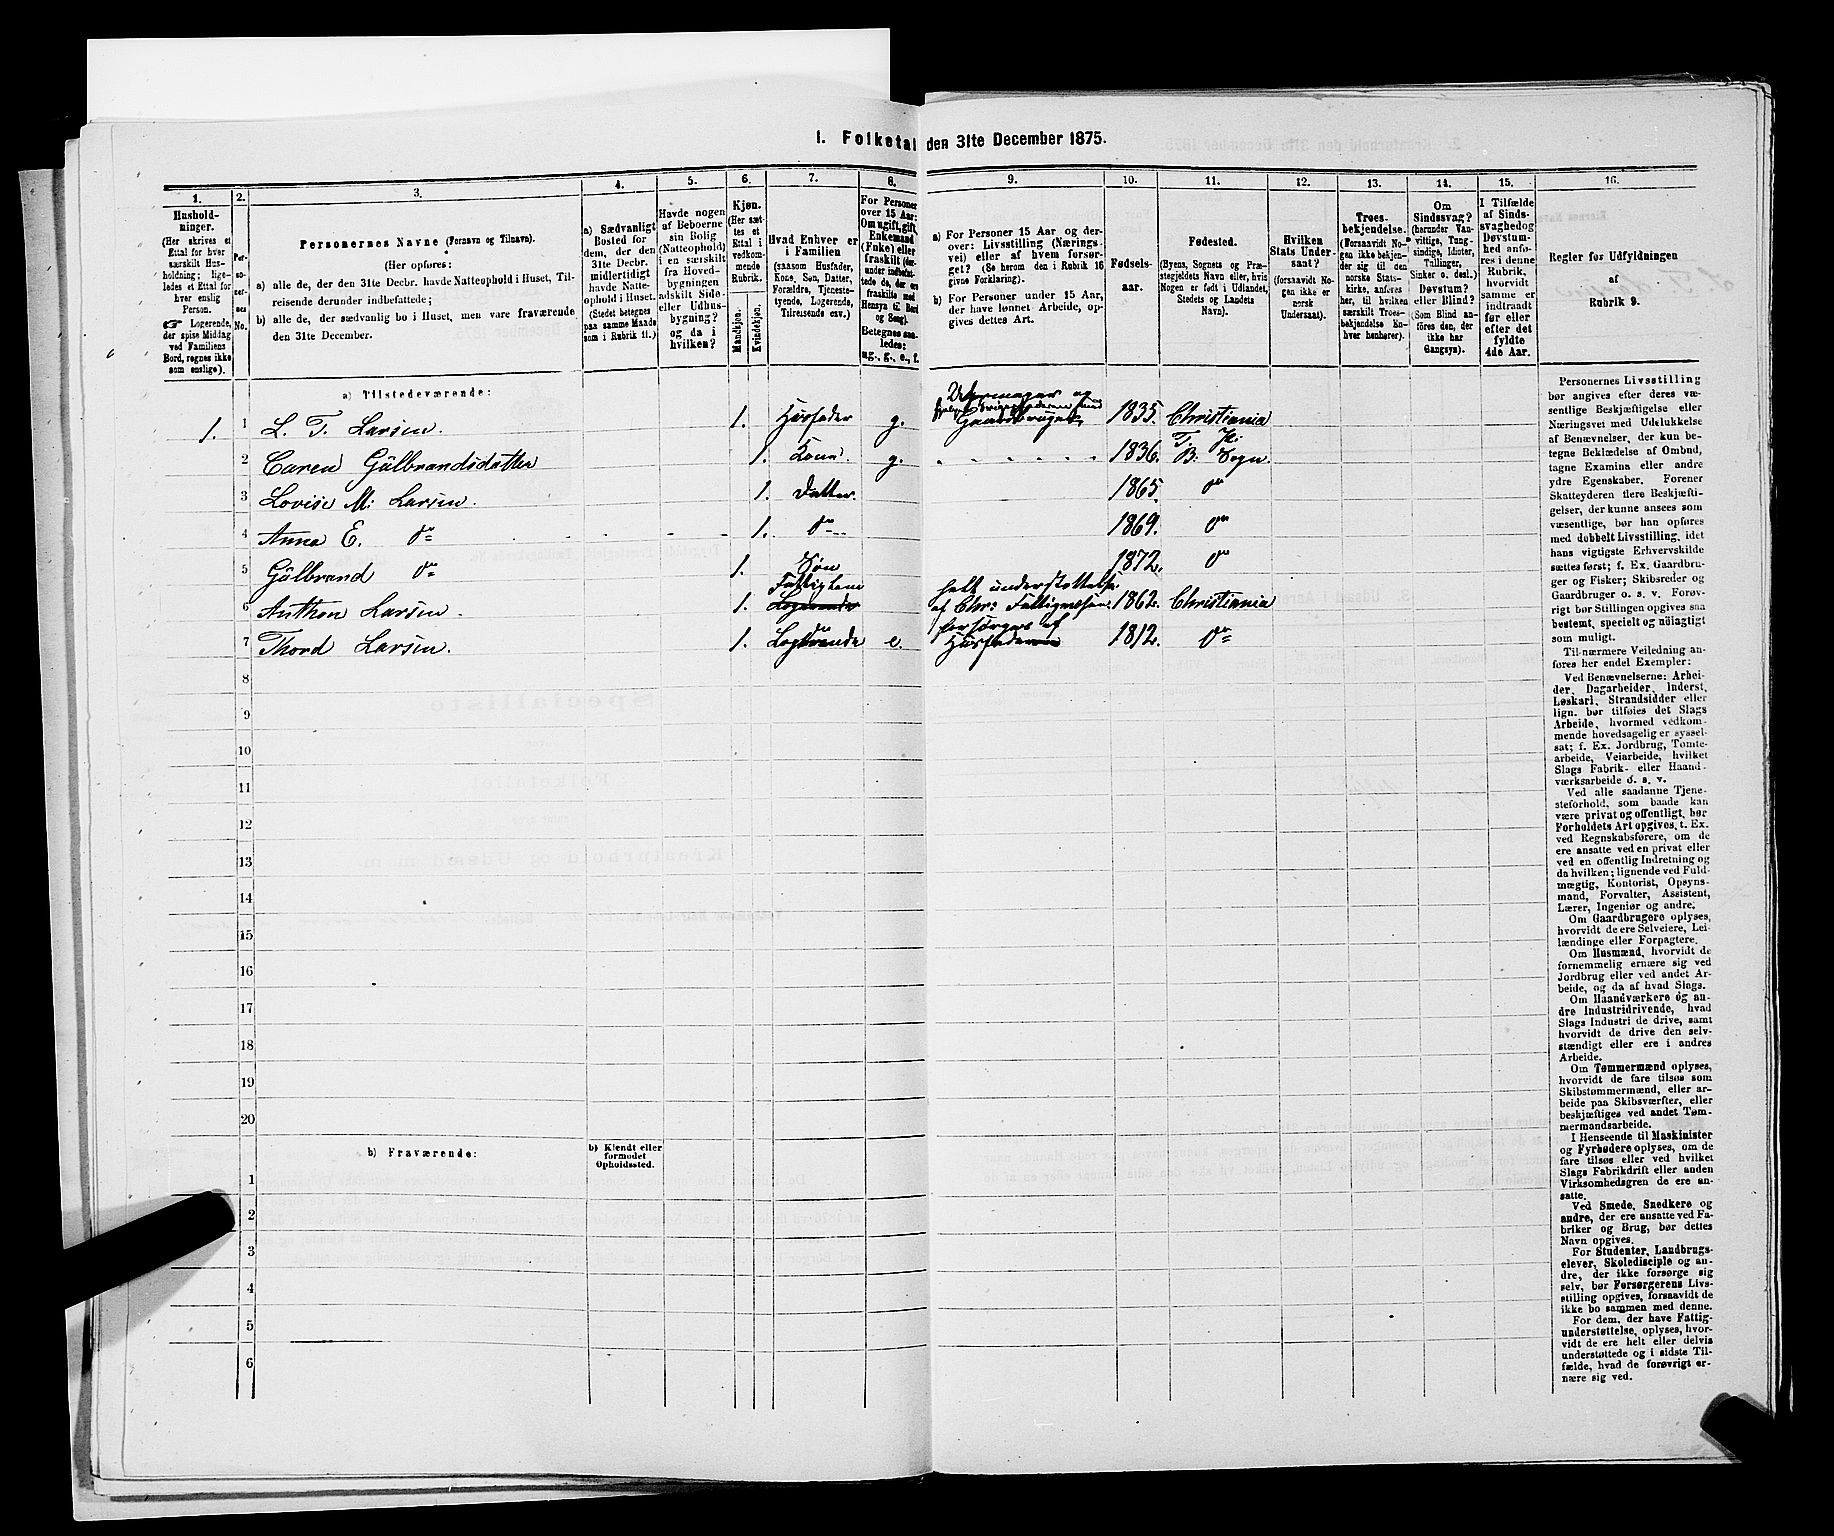 1. Folketal den 31te December 1875.
1.
2.
3.
4.
5.
6.
7.
8.
9.
10.
11.
12.
13.
14.
15.
16.
Hushold-
ninger.
(Her skrives et
Ettal for hver
særskilt Hus-
holdning; lige-
ledes et Ettal for
hver enslig
Person.
☞ Logerende,
der spise Middag
ved Familiens
Bord, regnes ikke
som enslige).
Per-
so-
ner-
nes
No.
Personernes Navne (Fornavn og Tilnavn).
(Her opføres:
a) alle de, der den 31te Decbr. havde Natteophold i Huset, Til-
reisende derunder indbefattede;
b) alle de, der sædvanlig bo i Huset, men vare fraværende
den 31te December.
a) Sædvanligt
Bosted for
dem, der den
31te Decbr.
midlertidigt
havde Natte-
ophold i Huset.
(Stedet betegnes
paa samme Maade
som i Rubrik 11.)
Havde nogen
af Beboerne
sin Bolig
(Natteophold)
i en særskilt
fra Hoved-
bygningen
adskilt Side-
eller Udhus-
bygning?
og da i
hvilken?
Kjøn.
(Her sæt-
tes et
Ettal i
vedkom-
mende
Rubrik.
Mandkjøn.
Kvindekjøn.
Hvad Enhver er
i Familien
(saasom Husfader,
Kone, Søn, Datter,
Forældre, Tjeneste-
tyende, Logerende,
Tilreisende osv.)
For Personer
over 15 Aar:
Om ugift, gift,
Enkemand
(Enke) eller
fraskilt (der-
under indbefat-
tede de, der ere
fraskilte med
Hensyn til Bord
og Seng).
Betegnes saa-
ledes:
ug., g., e., f.
a) For Personer 15 Aar og der-
over: Livsstilling (Nærings-
vei) eller af hvem forsør-
get? (Se herom den i Rubrik 16
givne Forklaring).
b) For Personer under 15 Aar,
der have lønnet Arbeide, op-
gives dettes Art.
Fødsels-
aar.
Fødested.
(Byens, Sognets og Præ-
stegjeldets Navn eller, hvis
Nogen er født i Udlandet,
Stedets og Landets
Navn).
Hvilken
Stats Under-
saat?
(forsaavidt No-
gen ikke er
norsk
Undersaat).
Troes-
bekjendelse.
(Forsaavidt No-
gen ikke bekjen-
der sig til den
norske Stats-
kirke, anføres
her, til hvilken
særskilt Troes-
bekjendelse En-
hver henhører).
Om
Sindssvag?
(herunder Van-
vittige, Tung-
sindige, Idioter,
Tullinger,
Sinker o. desl.)
Døvstum?
eller Blind?
(Som Blind an-
føres den, der
ikke har
Gangsyn).
I Tilfælde
af Sinds-
svaghed og
Døvstum-
hed anfø-
res i denne
Rubrik,
hvorvidt
samme er
indtraadt
før eller
efter det
fyldte
4de Aar.
Regler for Udfyldningen
af
Rubrik 9.
a) Tilstedeværende:
1. 1 L. T. Larsen. 1. Husfader g. Uhrmager og Gaardbruger 1835. Christiania
2 Caren Gülbrandsdatter 1. Kone. g. 1836. B. Sogn.
3 Lovise M. Larsen. 1. Datter. 1865. do
4 Anna E. do 1. do 1869. do
5 Gülbrand do 1. Søn 1872. do
6 Anthon Larsen. 1. Fattiglem Logerende helt understøttelse af Chr. Fattigvæsen. 1862. Christiania
7 Thord Larsen. 1. Logerende e. forsørges af Husfaderen 1812. do
8
9
10
11
12
13
14
15
16
17
18
19
20
b) Fraværende:
b) Kjendt eller
formodet
Opholdssted.
1
2
3
4
5
6
Personernes Livsstilling
bør angives efter deres væ-
sentlige Beskjæftigelse eller
Næringsvei med Udelukkelse
af Benævnelser, der kun be-
tegne Beklædelse af Ombud,
tagne Examina eller andre
ydre Egenskaber. Forener
Skatteyderen flere Beskjæfti-
gelser, der kunne ansees som
væsentlige, bør han opføres
med dobbelt Livsstilling, idet
hans vigtigste Erhvervskilde
sættes først; f. Ex. Gaardbru-
ger og Fisker; Skibsreder og
Gaardbruger o. s. v. Forøv-
rigt bør Stillingen opgives saa
bestemt, specielt og nøiagtigt
som muligt.
Til nærmere Veiledning an-
føres her endel Exempler:
Ved Benævnelserne: Arbei-
der, Dagarbeider, Inderst,
Løskarl, Strandsidder eller
lign. bør tilføies det Slags
Arbeide, hvormed vedkom-
mende hovedsagelig er syssel-
sat; f. Ex. Jordbrug, Tomte-
arbeide, Veiarbeide, hvilket
Slags Fabrik- eller Haand-
værksarbeide o. s. v.
Ved alle saadanne Tjene-
steforhold, som baade kan
være privat og offentligt, bør
Forholdets Art opgives, t. Ex.
ved Regnskabsførere, om de
ere ansatte ved en privat eller
ved en offentlig Indretning og
da hvilken; lignende ved Fuld-
mægtig, Kontorist, Opsyns-
mand, Forvalter, Assistent,
Lærer, Ingeniør og andre.
Om Gaardbrugere oplyses,
hvorvidt de ere Selveiere, Lei-
lændinge eller Forpagtere.
Om Husmænd, hvorvidt de
fornemmelig ernære sig ved
Jordbrug eller ved andet Ar-
beide, og da af hvad Slags.
Om Haandværkere og an-
dre Industridrivende, hvad
Slags Industri de drive, samt
hvorvidt de drive den selv-
stændigt eller ere i andres
Arbeide.
Om Tømmermænd oplyses,
hvorvidt de fare tilsøs som
Skibstømmermænd, eller ar-
beide paa Skibsværfter, eller
beskjæftiges ved andet Tøm-
mermandsarbeide.
I Henseende til Maskinister
og Fyrbødere oplyses, om de
fare tilsøs eller ved hvilket
Slags Fabrikdrift eller anden
Virksomhedsgren de ere an-
satte.
Ved Smede, Snedkere og
andre, der ere ansatte ved Fa-
briker og Brug, bør dettes
Navn opgives.
For Studenter, Landbrugs-
elever, Skoledisciple og an-
dre, der ikke forsørge sig
selv, bør Forsørgerens Livs-
stilling opgives, forsaavidt de
ikke bo sammen med denne.
For dem, der have Fattig-
understøttelse, oplyses, hvor-
vidt de ere helt eller delvis
understøttede og i sidste Til-
fælde, hvad de forøvrigt er-
nære sig ved.